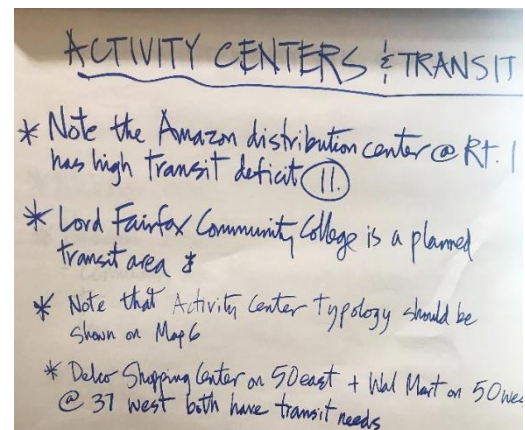 ACTIVITY CENTERS & TRANSIT
* Note the Amazon distribution center @ Rt. 1
has high transit deficit 11.
* Lord Fairfax Community College is a planned
transit area &
* Note that Activity Center Typology should be
shown on Map 6
* Delco Shopping Center on 50 east + Wal Mart on 50 wes
@ 37 west both have transit needs